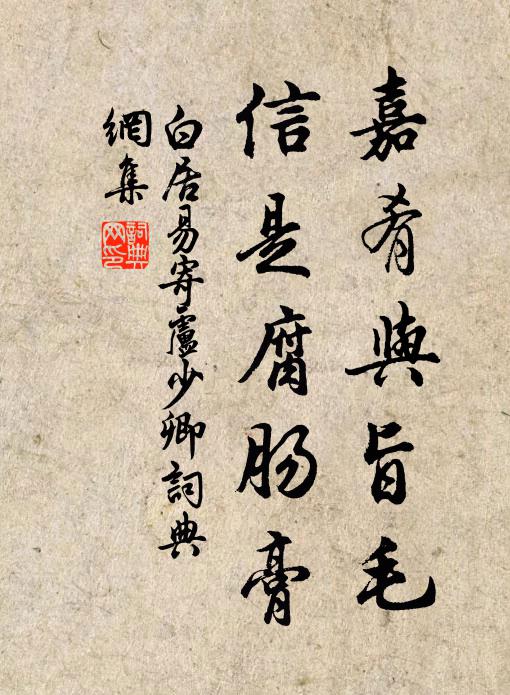 嘉肴與旨毛
信是腐肠膏
白居易寄盧少卿詞典
網集
詞典
网印